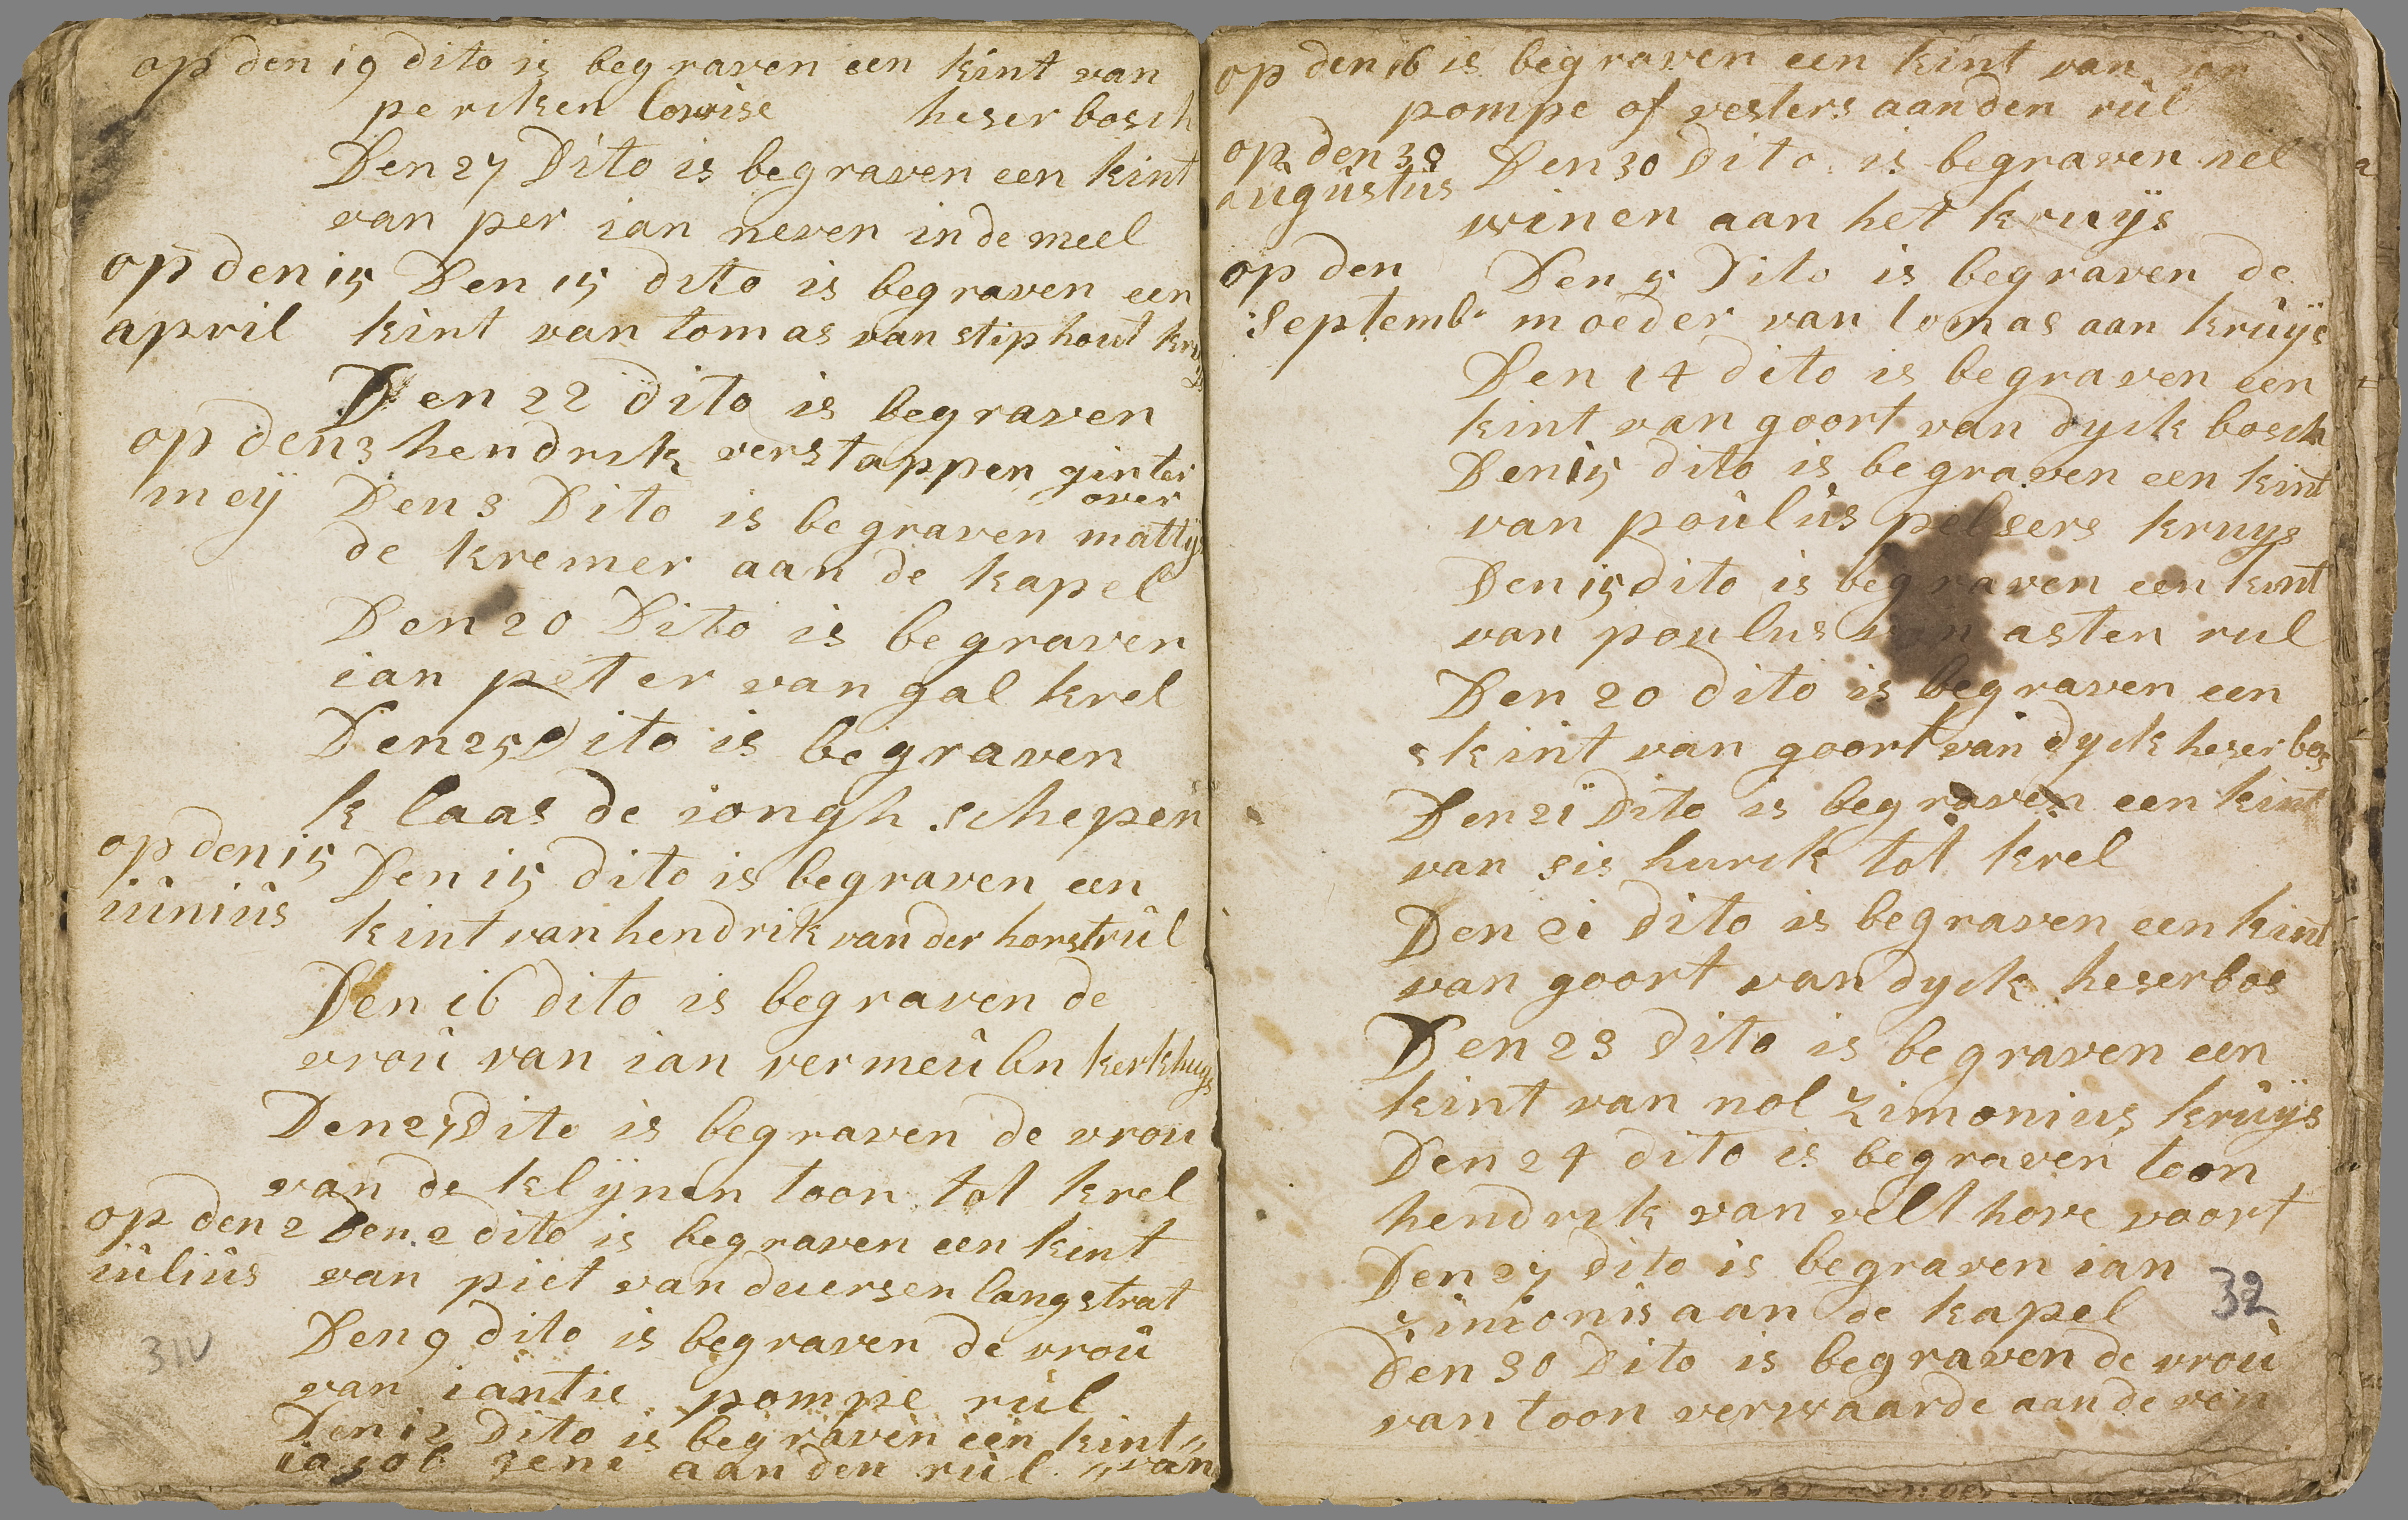 op den 19 dito is begraven een kint van
pericken lowise heser bosch
Den 27 Dito is begraven een kint
van per ian neven in de meel
op den 15 Den 15 dito is begraven een
april kint van tomas van stiphout kruys
Den 22 dito is begraven
op den 3 hendrik verstappen ginter
over
meÿ Den 3 Dito is begraven mattys
de kremer aan de kapel
Den 20 Dito is begraven
ian peter van gal krel
Den 25 Dito is begraven
klaas de iongh schepen
op den 15 Den 15 dito is begraven een
iùniùs kint van hendrik van der horst rùl
Den 16 dito is begraven de
vroù van ian vermeùlen kerkhuys
Den 27 Dito is begraven de vrou
van de klÿnen toon tot krel
op den 2 Den 2 dito is begraven een kint
iùliùs van piet van deuersen langstrat
Den 9 dito is begraven de vroù
van iantie pompe rùl
Den 12 dito is begraven een kint
iacob zene aan den rùl van
31V
op den 16 is begraven een kint van ian
pompe of vesters aan den rùl
op den 30 Den 30 dito is begraven nel
aùgùstùs winen aan het kruÿs
op den Den 5 Dito is begraven de
Septemb moeder van tomas aan krùÿs
Den 14 dito is begraven een
kint van goort van dyck bosch
Den 15 dito is begraven een kint
van poùlùs pelsers kruys
Den 15 dito is begraven een kint
van poulus van asten rul
Den 20 dito is begraven een
kint van goort van dyck heser bos
Den 21 Dito is begraven een kint
van sis hurck tot krel
Den 21 Dito is begraven een kint
van goort van dyck heserbos
Den 23 Dito is begraven een
kint van nol zimonius krùÿs
Den 24 dito is begraven toon
hendrik van velthove voort
Den 27 dito is begraven ian
zimonis aan de kapel
32
Den 30 Dito is begraven de vroù
van toon verwaarde aan de ven